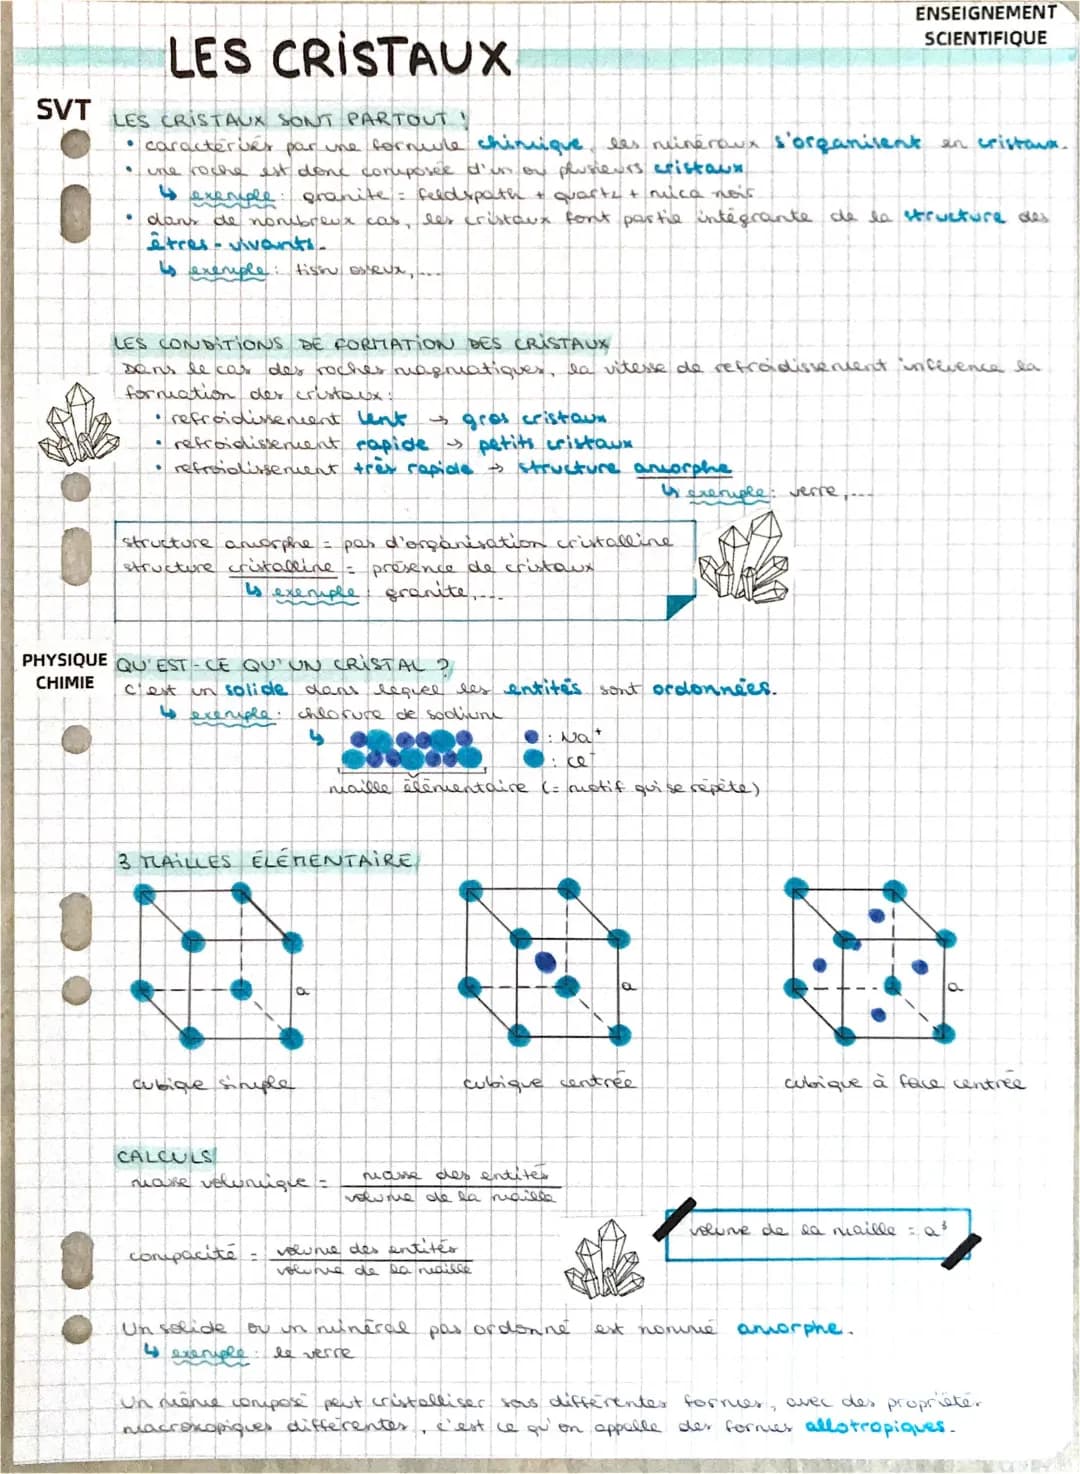 ENSEIGNEMENT
SCIENTIFIQUE
LES CRISTAUX
SVT
LES CRISTAUX SONT PARTOUT !
• caractérisés par une formule chimique, les minéraux s'organisent en cristaux.
• une roche est donc composée d'un ou plusieurs cristaux
↳ exemple : granite = feldspath + quartz + mica noir
• dans de nombreux cas, les cristaux font partie intégrante de la structure des
êtres-vivants.
↳ exemple : tissu osseux,...
LES CONDITIONS DE FORMATION DES CRISTAUX
Dans le cas des roches magmatiques, la vitesse de refroidissement influence la
formation des cristaux :
• refroidissement lent → gros cristaux
• refroidissement rapide → petits cristaux
• refroidissement très rapide → structure amorphe
↳ exemple : verre,...
structure amorphe = pas d'organisation cristalline
structure cristalline = présence de cristaux
↳ exemple : granite,...
PHYSIQUE
CHIMIE
QU'EST-CE QU'UN CRISTAL ?
c'est un solide dans lequel les entités sont ordonnées.
↳ exemple : chlorure de sodium
↳ : Na⁺
: Cl⁻
maille élémentaire (= motif qui se répète)
3 MAILLES ÉLÉMENTAIRE
a a a
cubique simple cubique centrée cubique à face centrée
CALCULS
masse volumique = masse des entités
volume de la maille
volume de la maille = a³
compacité = volume des entités
volume de la maille
Un solide ou un minéral pas ordonné est nommé amorphe.
↳ exemple : le verre
Un même composé peut cristalliser sous différentes formes, avec des propriétés
macroscopiques différentes, c'est ce qu'on appelle des formes allotropiques.